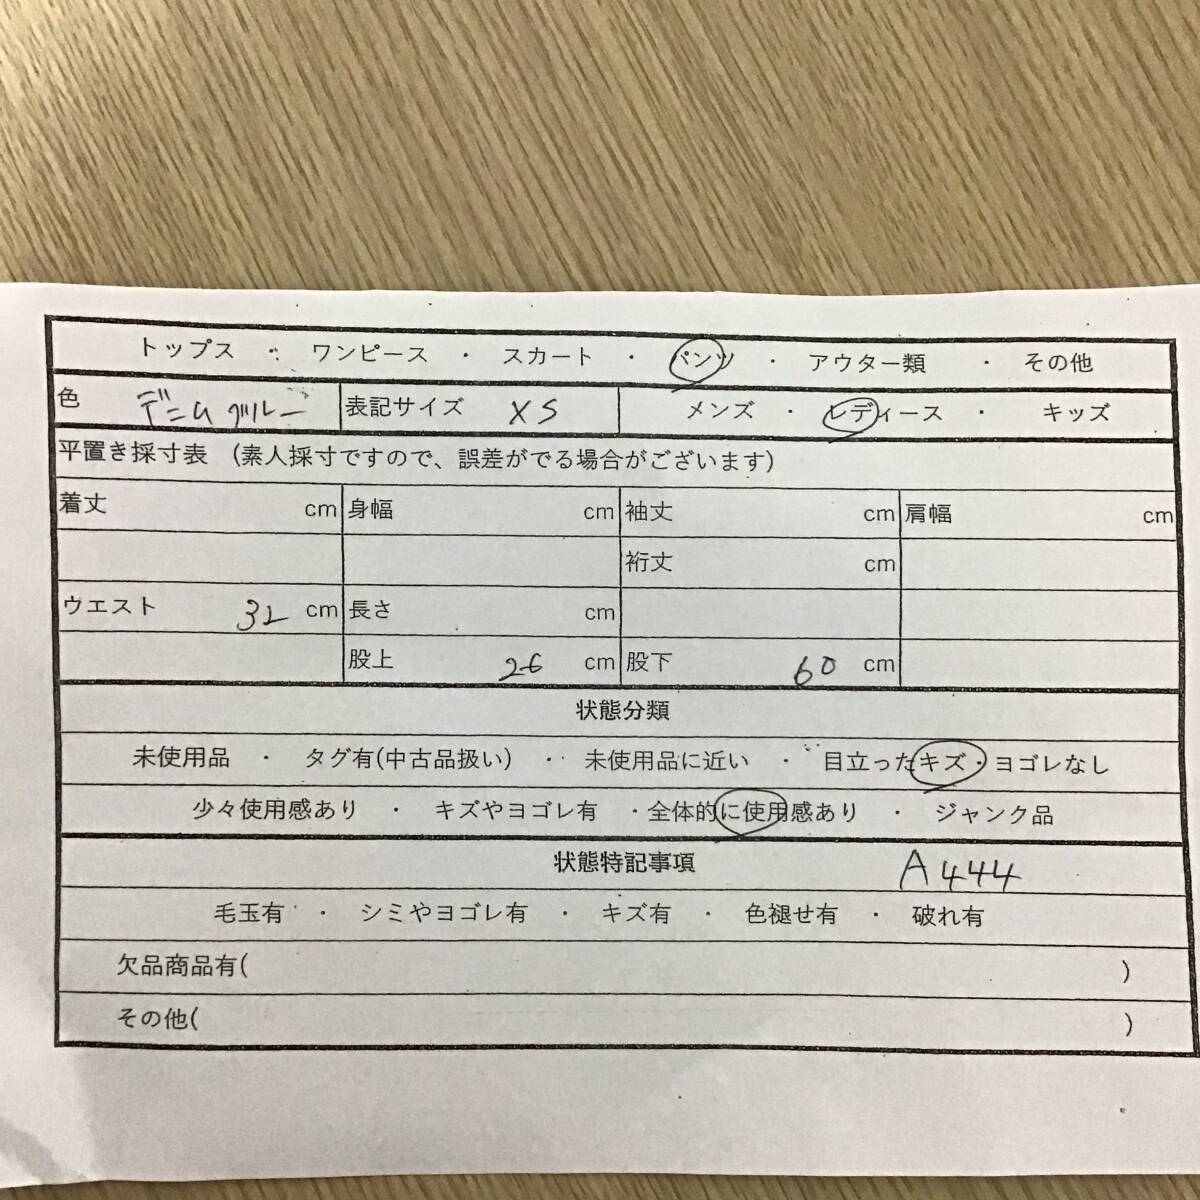 トップス ・ ワンピース ・ スカート ・ パンツ ・ アウター類 ・ その他
色 デニムブルー 表記サイズ XS メンズ ・ レディース ・ キッズ
平置き採寸表 (素人採寸ですので、誤差がでる場合がございます)
着丈 cm 身幅 cm 袖丈 cm 肩幅 cm
裄丈 cm
ウエスト 32 cm 長さ cm
股上 26 cm 股下 60 cm
状態分類
未使用品 ・ タグ有(中古品扱い) ・ 未使用品に近い ・ 目立ったキズ・ヨゴレなし
少々使用感あり ・ キズやヨゴレ有 ・全体的に使用感あり ・ ジャンク品
状態特記事項 A444
毛玉有 ・ シミやヨゴレ有 ・ キズ有 ・ 色褪せ有 ・ 破れ有
欠品商品有( )
その他( )